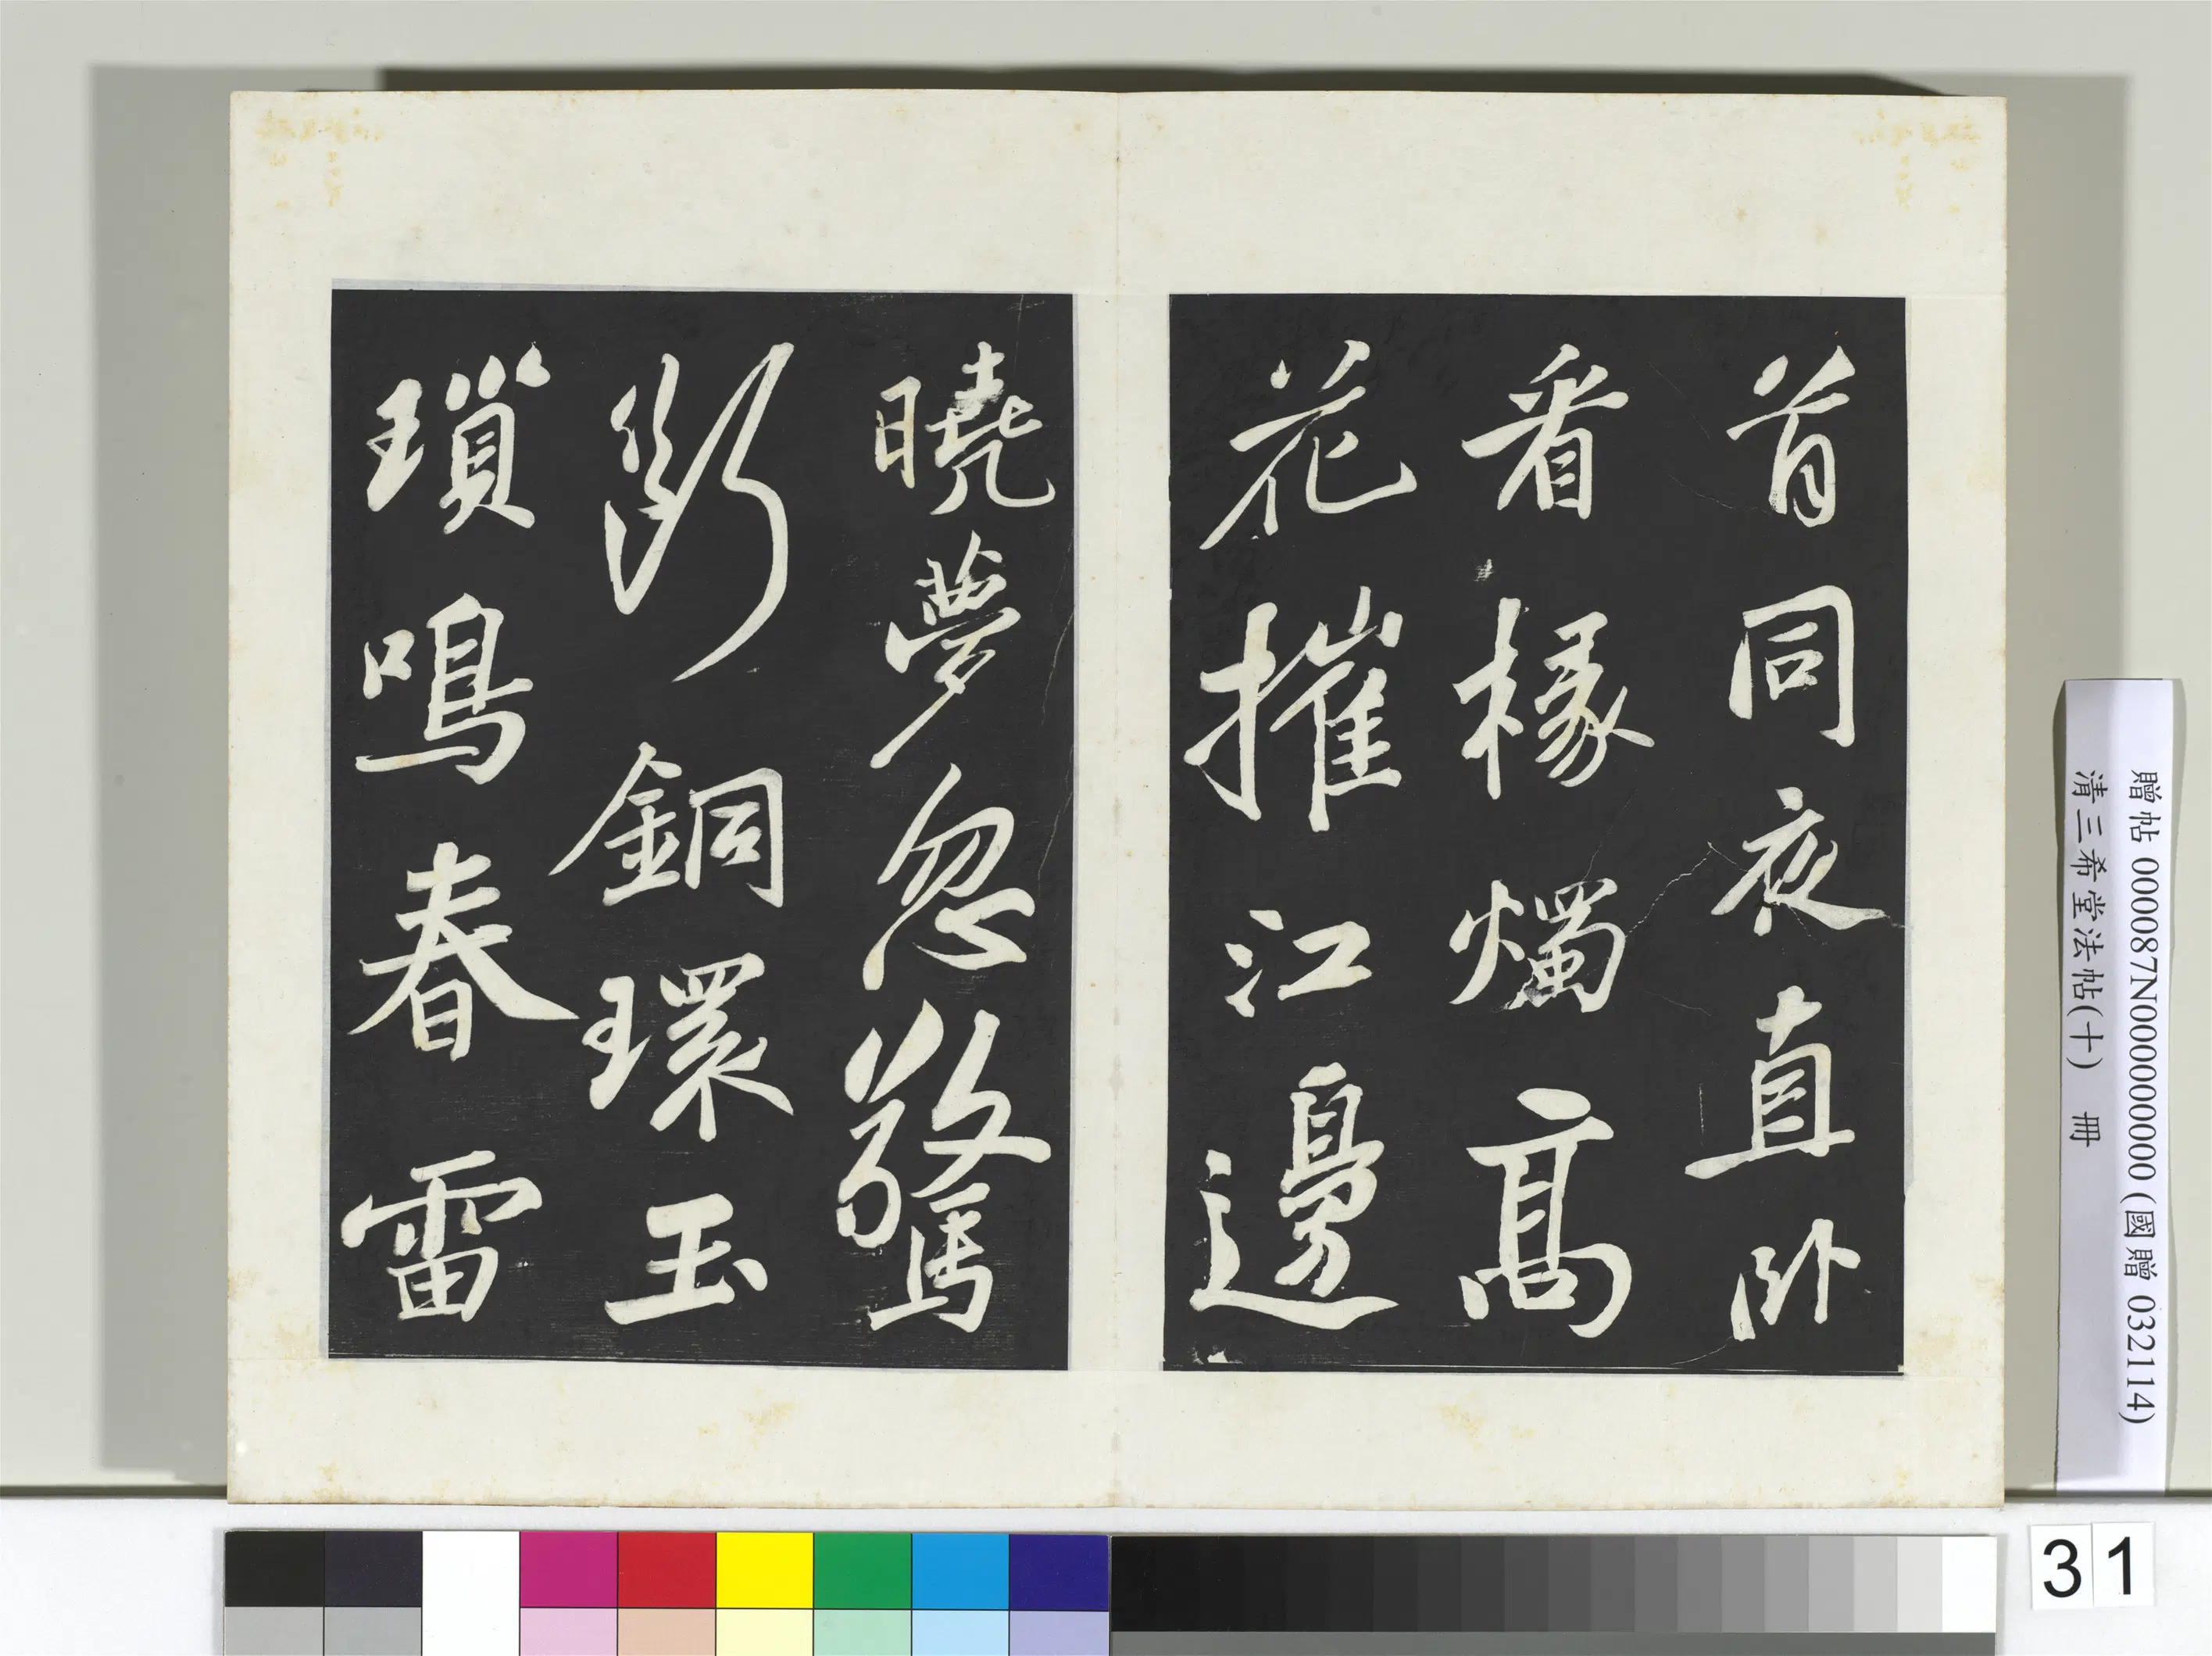 首同夜直臥
看椽燭高
花摧江邊
曉夢忽驚
斷銅環玉
瑣鳴春雷
贈帖 000087N000000000 (國贈 032114)
清三希堂法帖(十) 冊
31